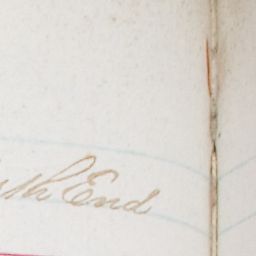 th End